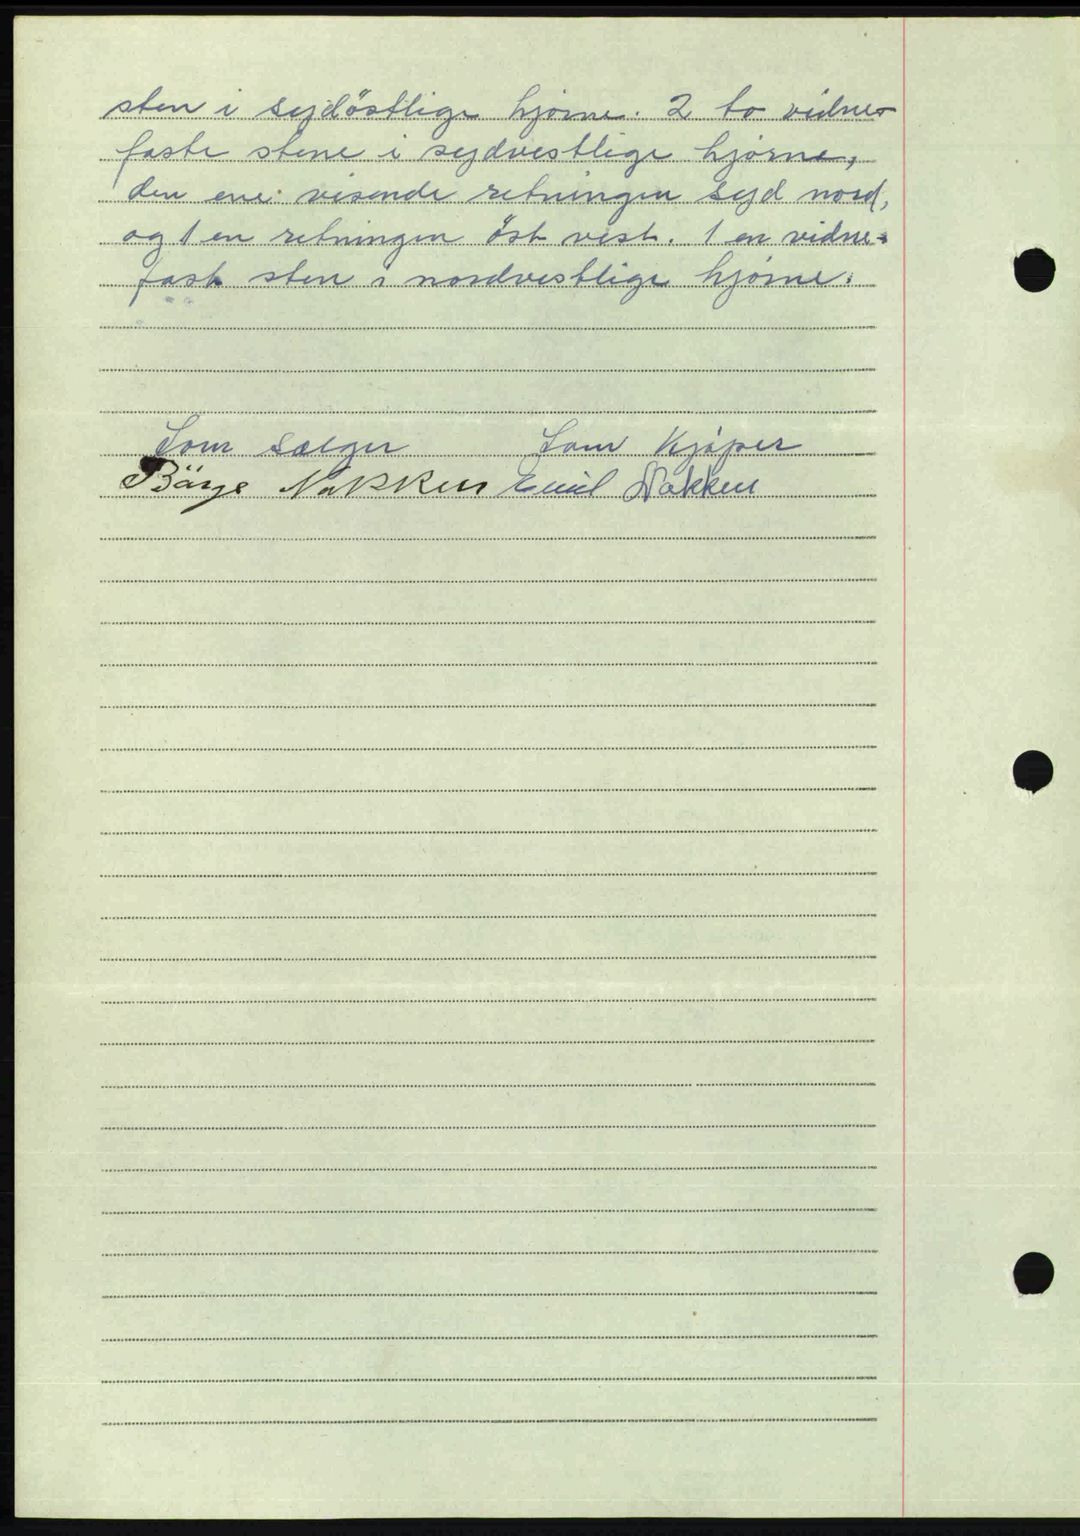 sten i sydöstlige hjörne. 2 to vidne-
faste stene i sydvestlige hjörne,
den ene visende retningen syd nord,
og 1 en retningen öst vest. 1 en vidne-
fast sten i nordvestlige hjörne.
Som sælger Som Kjöper
Börge Nakken Emil Nakken